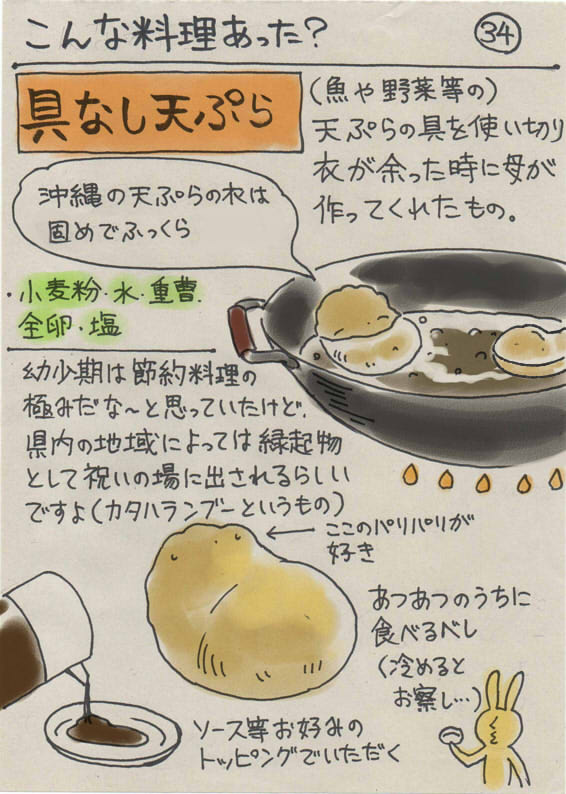 こんな料理あった？
34
具なし天ぷら
(魚や野菜等の)
天ぷらの具を使い切り
衣が余った時に母が
作ってくれたもの。
沖縄の天ぷらの衣は
固めでふっくら
・小麦粉・水・重曹・
全卵・塩
幼少期は節約料理の
極みだな〜と思っていたけど、
県内の地域によっては縁起物
として祝いの場に出されるらしい
ですよ(カタハランブーというもの)
ここのパリパリが
好き
あつあつのうちに
食べるべし
(冷めると
お察し…)
ソース等お好みの
トッピングでいただく